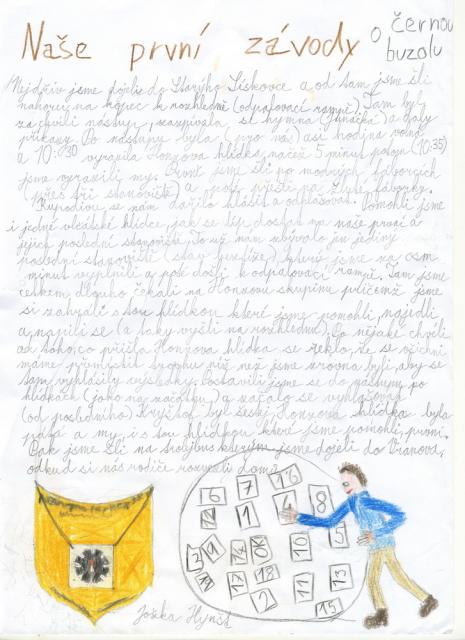 Naše první závody o černou
buzolu
Nejdřív jsme dojeli do Starého Lískovce a od tam jsme šli
nahoru na kopec k rozhledně (odpalovací rampě). Tam byl
za chvíli nástup, zazpívala se hymna (junácká) a daly
příkazy. Po nástupu byla (pro nás) asi hodina volna
a 10:30 vyrazila Honzova hlídka, načež 5 minut potom (10:35)
jsme vyrazili my. Prvně jsme šli po modrých fáborcích
(přes tři stanoviště) a poté přešli na žluté fáborky.
Kupodivu se nám dařilo hlásit a odhlašovat. Pomohli jsme
i jedné vlčátské hlídce, jak se líp dostat na naše první a
jejich poslední stanoviště. To už nám zbývalo jen jediný
poslední stanoviště (stav. ), který jsme na osm
minut vyplnili a poté došli k odpalovací rampě. Tam jsme
celkem dlouho čekali na Honzovu skupinu přičemž jsme
si zahráli s tou hlídkou které jsme pomohli, najedli
a napili se (a taky vyšli na rozhlednu). Po nějaké chvíli
od toho, co přišla Honzova hlídka se řeklo, že se všichni
máme přemístit trochu níž než jsme zrovna byli, aby se
tam vyhlásily výsledky. Postavili jsme se do nástupu po
hlídkách (jako na začátku) a začalo se vyhlašovat
(od posledního) Kryštof byl šestej Honzova hlídka byla
pátá a my, i s tou hlídkou které jsme pomohli, první.
Pak jsme šli na trolejbus kterým jsme dojeli do Vranova,
odkud si nás rodiče rozvezli domů.
6 7 16
1 4 8
9 OK 10 5
17 18 11 13
2 15
Joška Hynšt